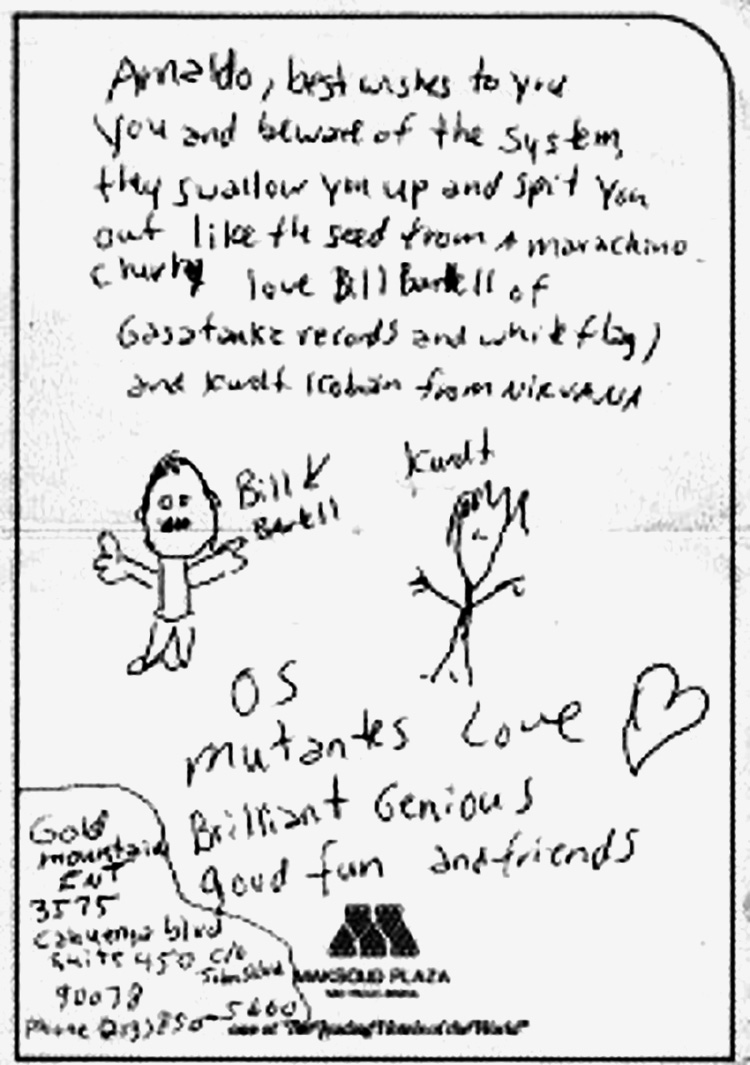 Arnaldo, best wishes to you
You and beware of the system,
they swallow you up and spit you
out like the seed from A marachino
churhy love Bill Bartell of
Gasatanka records and white flag)
and kurdt kobain from NIRVANA
Bill
Bartell
kurdt
OS
mutantes Love
Brilliant Genious
good fun and friends
Gold
mountain
ENT
3575
Cahuenga blvd
Suite 450 c/o
John Silva
90078
Phone (213) 850-5660
MAKSOUD PLAZA
SÃO PAULO BRASIL
one of "The Leading Hotels of the World"